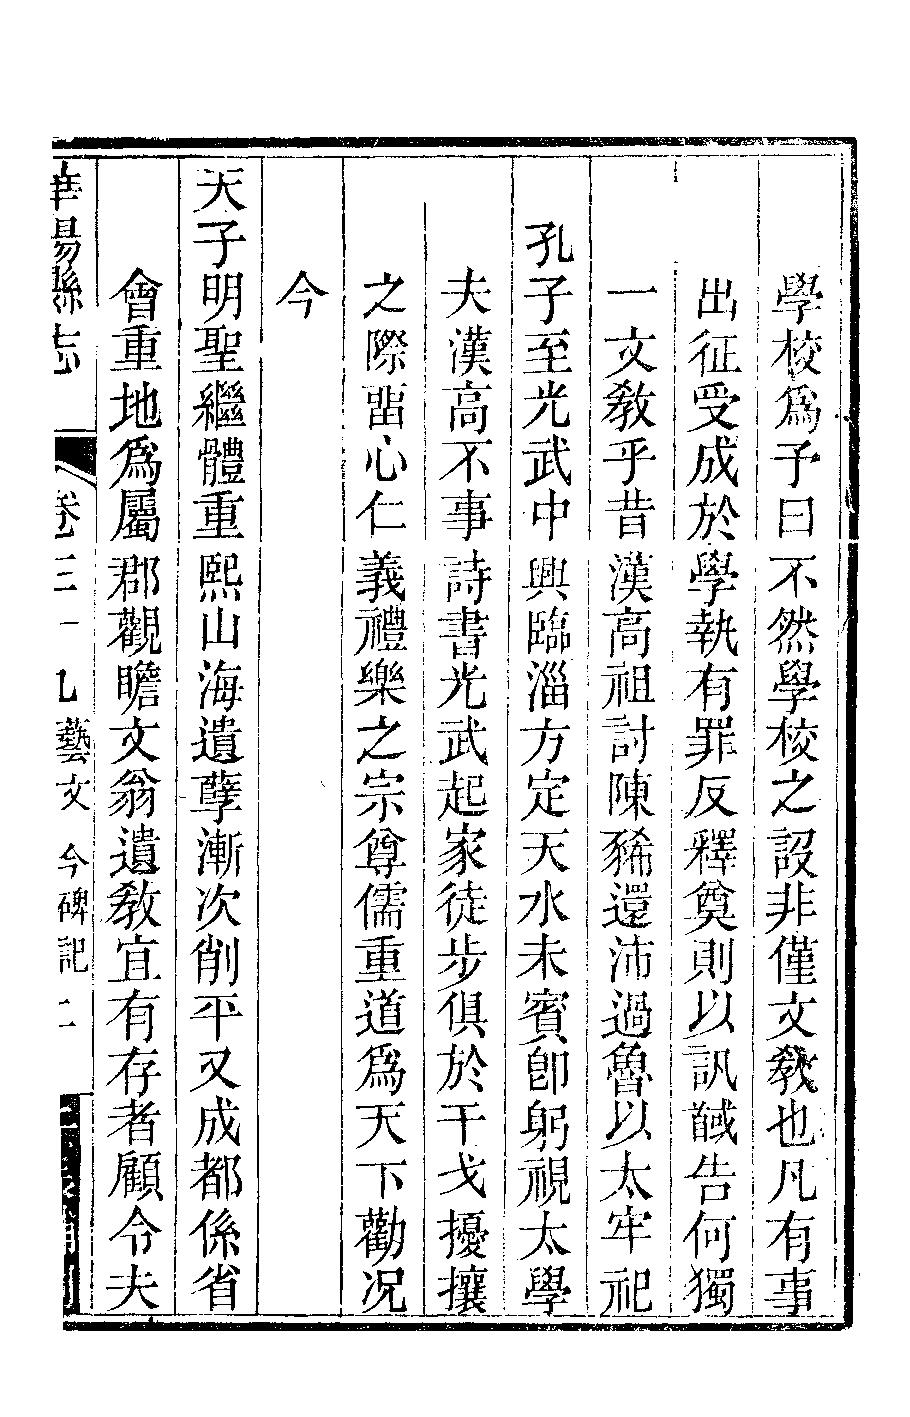 學校爲予曰不然學校之設非僅文敎也凡有事
出征受成於學執有罪反釋奠則以訊馘告何獨
一文敎乎昔漢高祖討陳豨還沛過魯以太牢祀
孔子至光武中興臨淄方定天水未賓卽躬視太學
夫漢高不事詩書光武起家徒步俱於干戈擾攘
之際畱心仁義禮樂之宗尊儒重道爲天下勸况
今
天子明聖繼體重熙山海遺孽漸次削平又成都係省
會重地爲屬郡觀瞻文翁遺敎宜有存者顧令夫
華陽縣志 卷三十九藝文 今碑記二